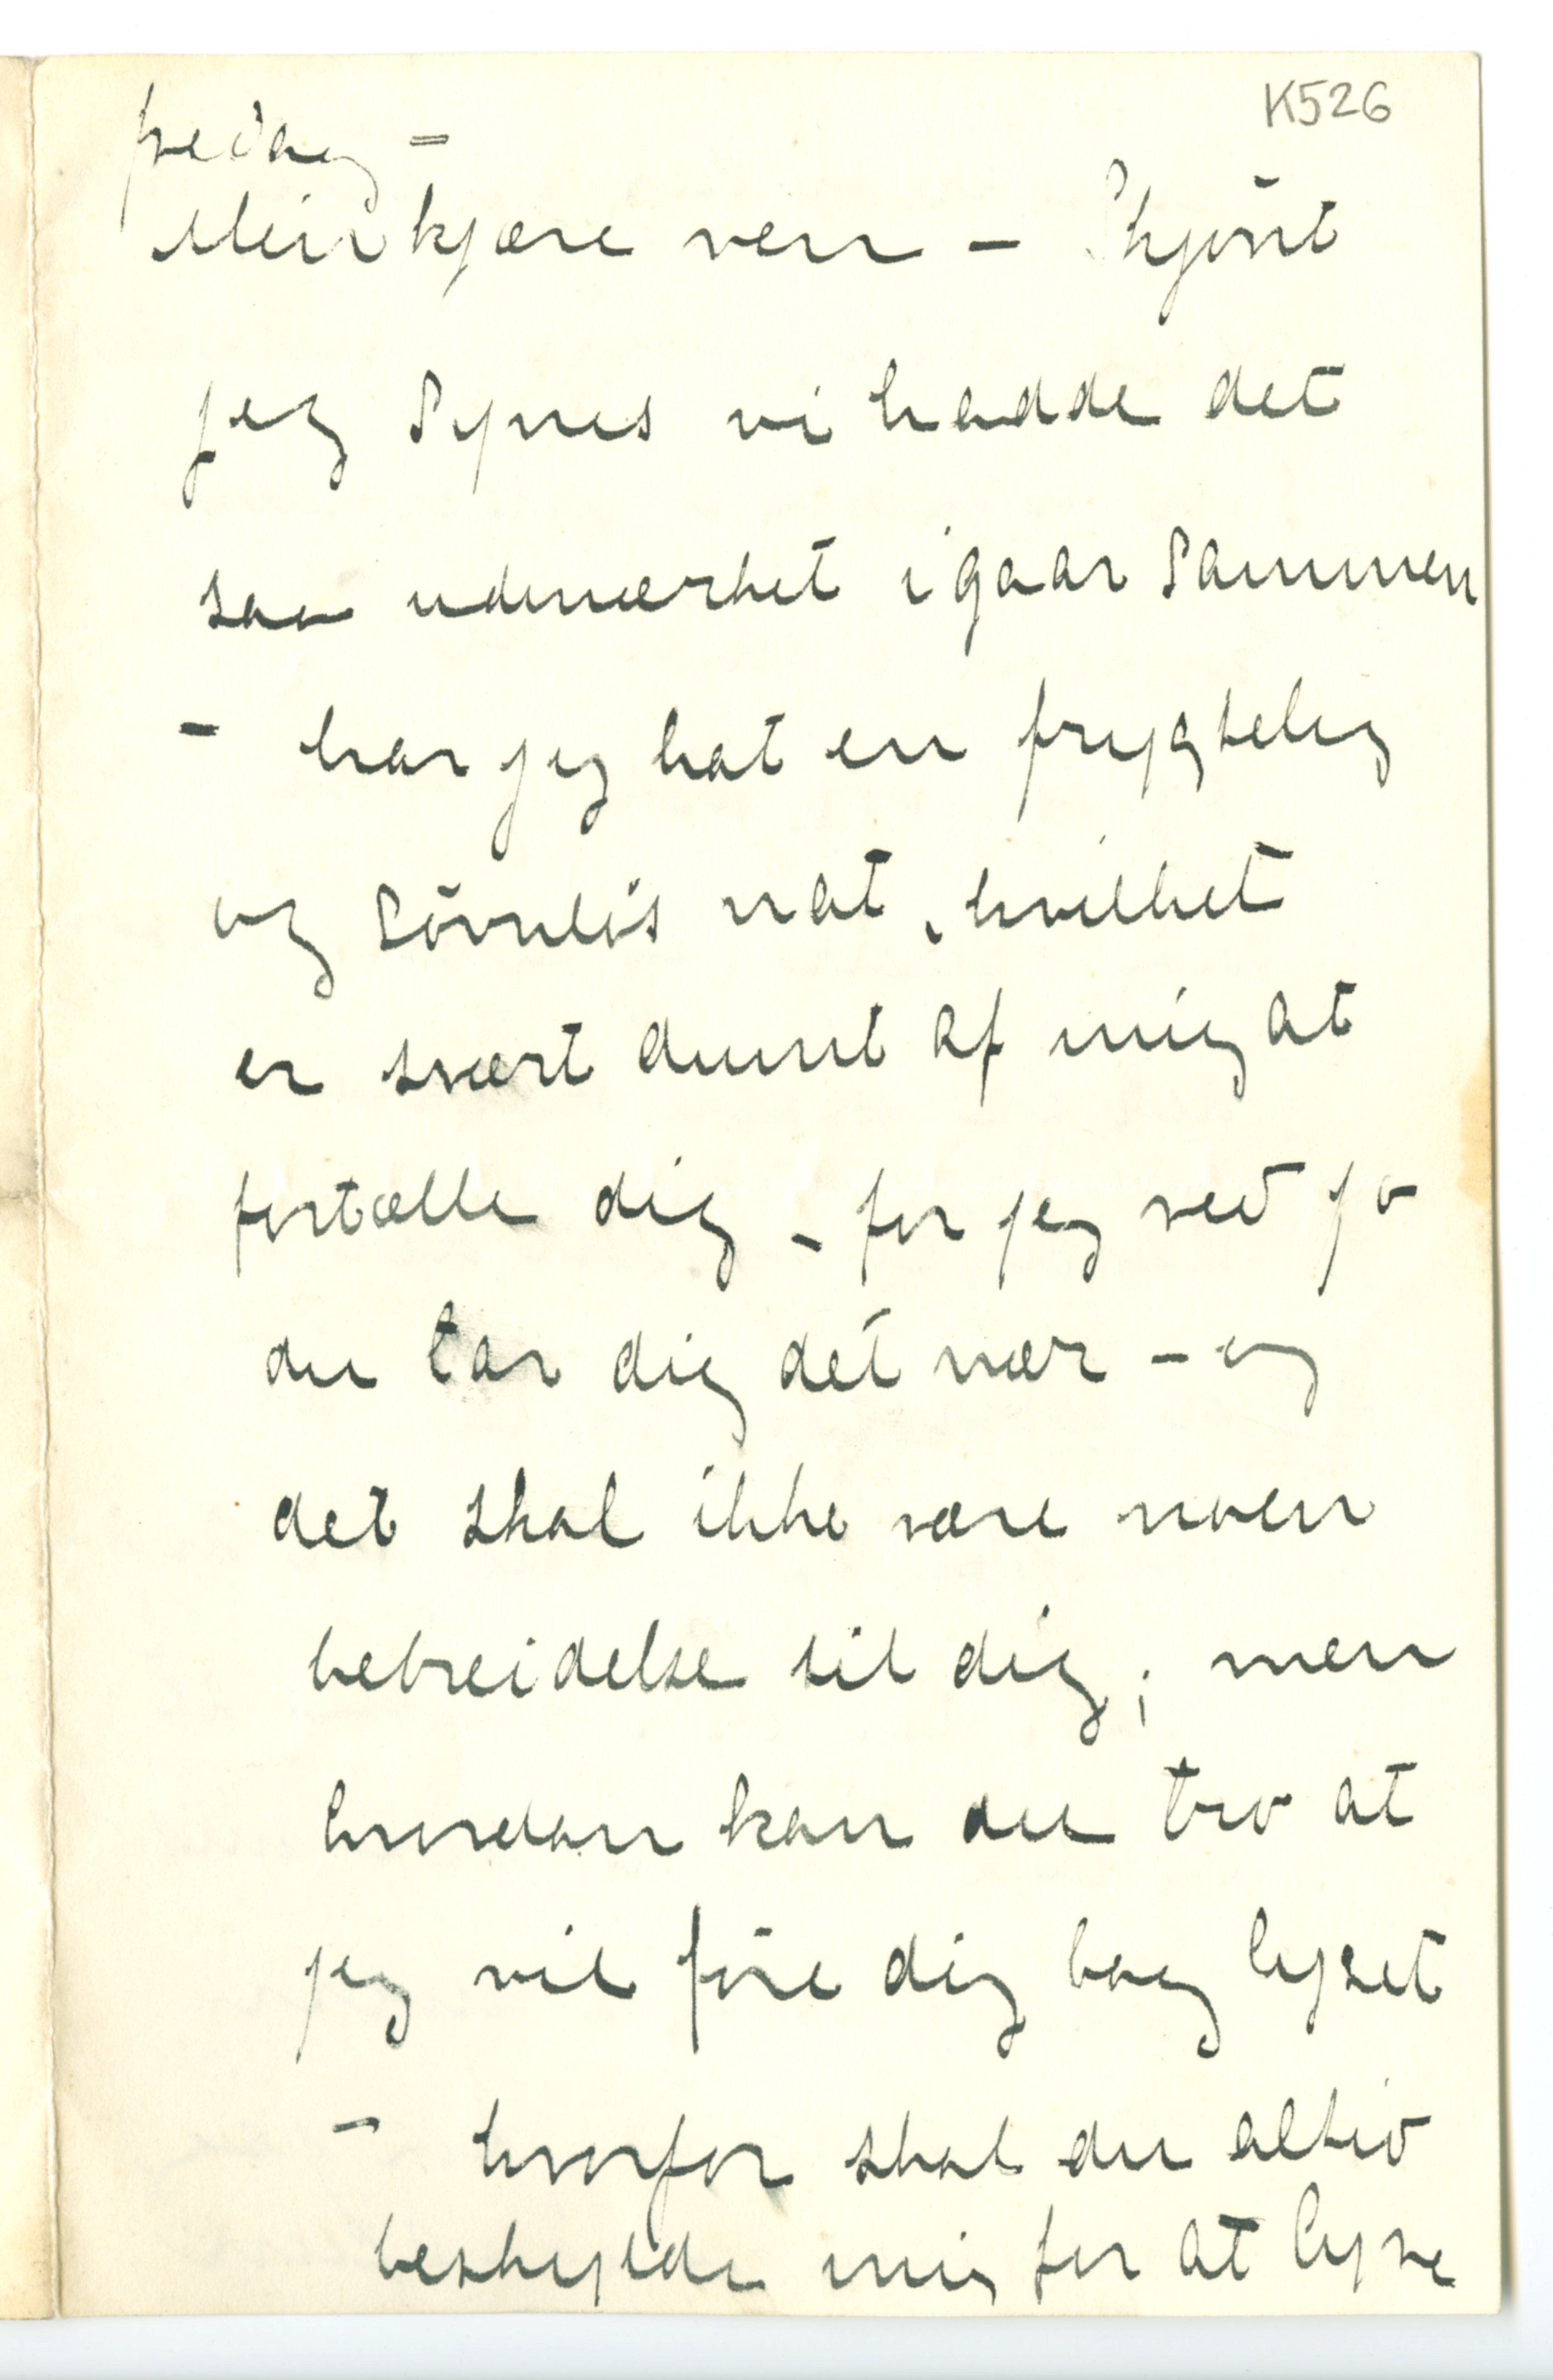 K526
fredag –
Min kjære ven – Skjönt
jeg synes vi hadde det
saa udmærket igaar sammen
– har jeg hat en frygtelig
og sövnlös nat, hvilket
er svært dumt af mig at
fortælle dig – for jeg ved jo
du tar dig det nær – og
det skal ikke være noen
bebreidelse til dig; men
hvordan kan du tro at
jeg vil före dig bag lyset
– hvorfor skal du altid
beskylde mig for at lyve